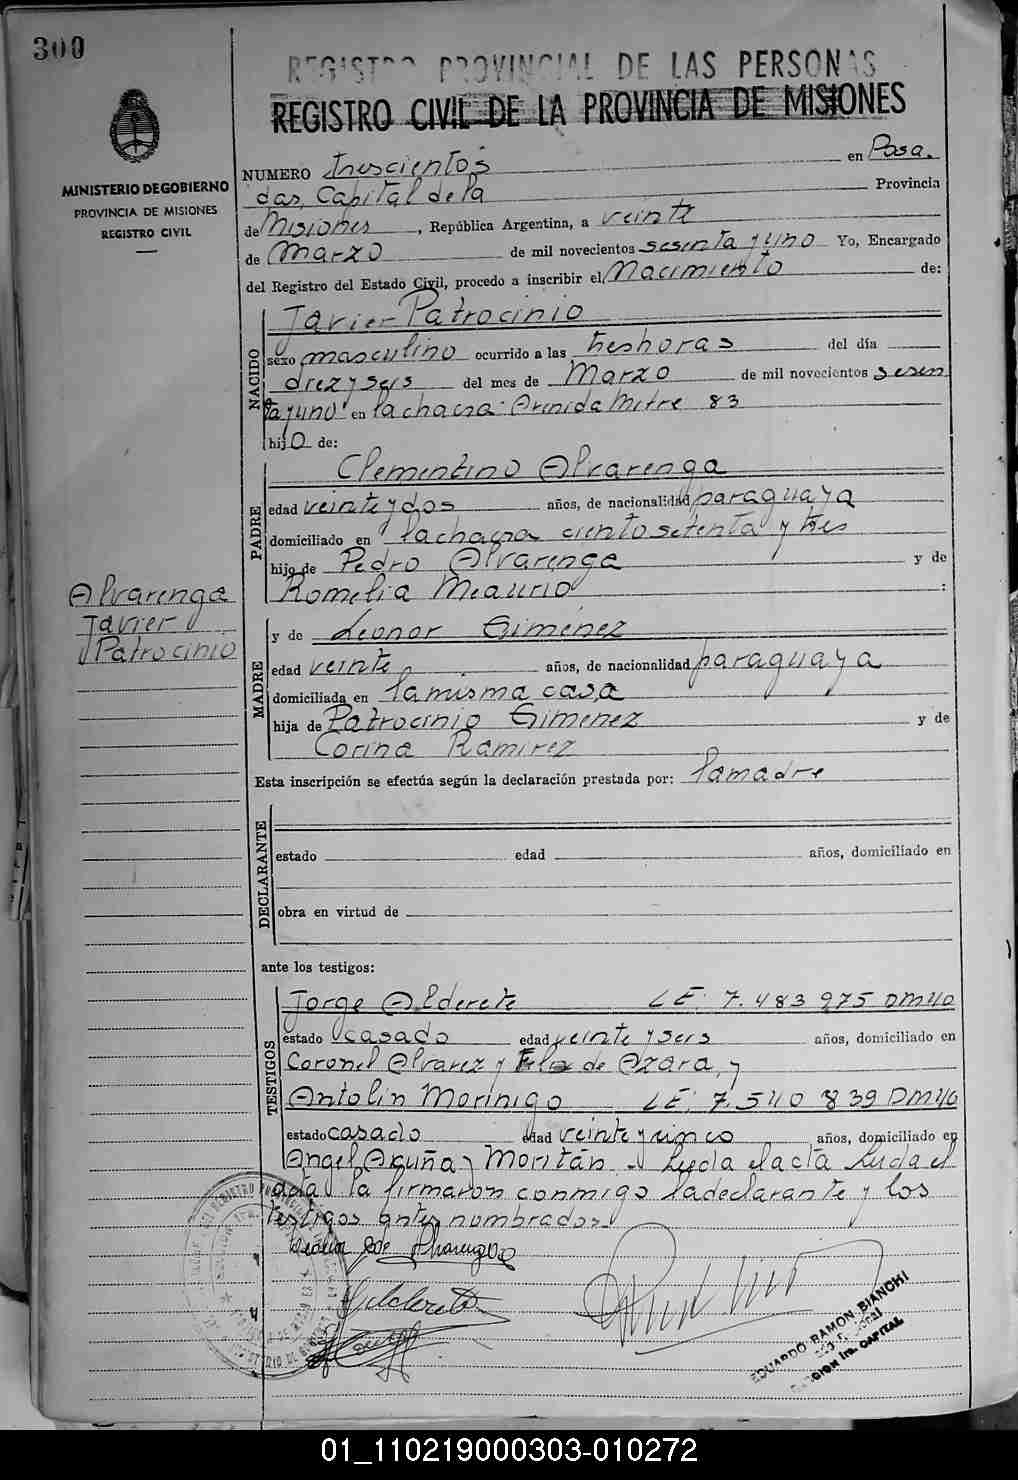 300
REGISTRO PROVINCIAL DE LAS PERSONAS
REGISTRO CIVIL DE LA PROVINCIA DE MISIONES
MINISTERIO DE GOBIERNO
PROVINCIA DE MISIONES
REGISTRO CIVIL
NUMERO Trescientos en Posa.
das, Capital de la Provincia
de Misiones, República Argentina, a veinte
de Marzo de mil novecientos sesenta y uno Yo, Encargado
del Registro del Estado Civil, procedo a inscribir el Nacimiento de:
NACIDO
Javier Patrocinio
sexo masculino ocurrido a las tres horas del día
diez y seis del mes de Marzo de mil novecientos sesen
ta y uno en la chacra: Avenida Mitre 83
hijo de:
PADRE
Clementino Alvarenga
edad veinte y dos años, de nacionalidad paraguaya
domiciliado en la chacra ciento setenta y tres
hijo de Pedro Alvarenga y de
Romelia Meaurio :
Alvarenga
Javier
Patrocinio
MADRE
y de Leonor Giménez
edad veinte años, de nacionalidad paraguaya
domiciliada en la misma casa
hija de Patrocinio Gimenez y de
Corina Ramirez
Esta inscripción se efectúa según la declaración prestada por: la madre
DECLARANTE
estado edad años, domiciliado en
obra en virtud de
ante los testigos:
TESTIGOS
Jorge Alderete LE: 7.483 975 DM40
estado casado edad veinte y seis años, domiciliado en
Coronel Alvarez y Felix de Azara, y
Antolin Morinigo LE: 7.540 839 DM40
estado casado edad veinte y cinco años, domiciliado en
Angel Acuña y Moritán - Leida el acta Leida el
acta la firmaron conmigo la declarante y los
testigos antes nombrados
de Alvarenga
Alderete
EDUARDO RAMON BIANCHI
SECCION 1ra. CAPITAL
01_110219000303-010272